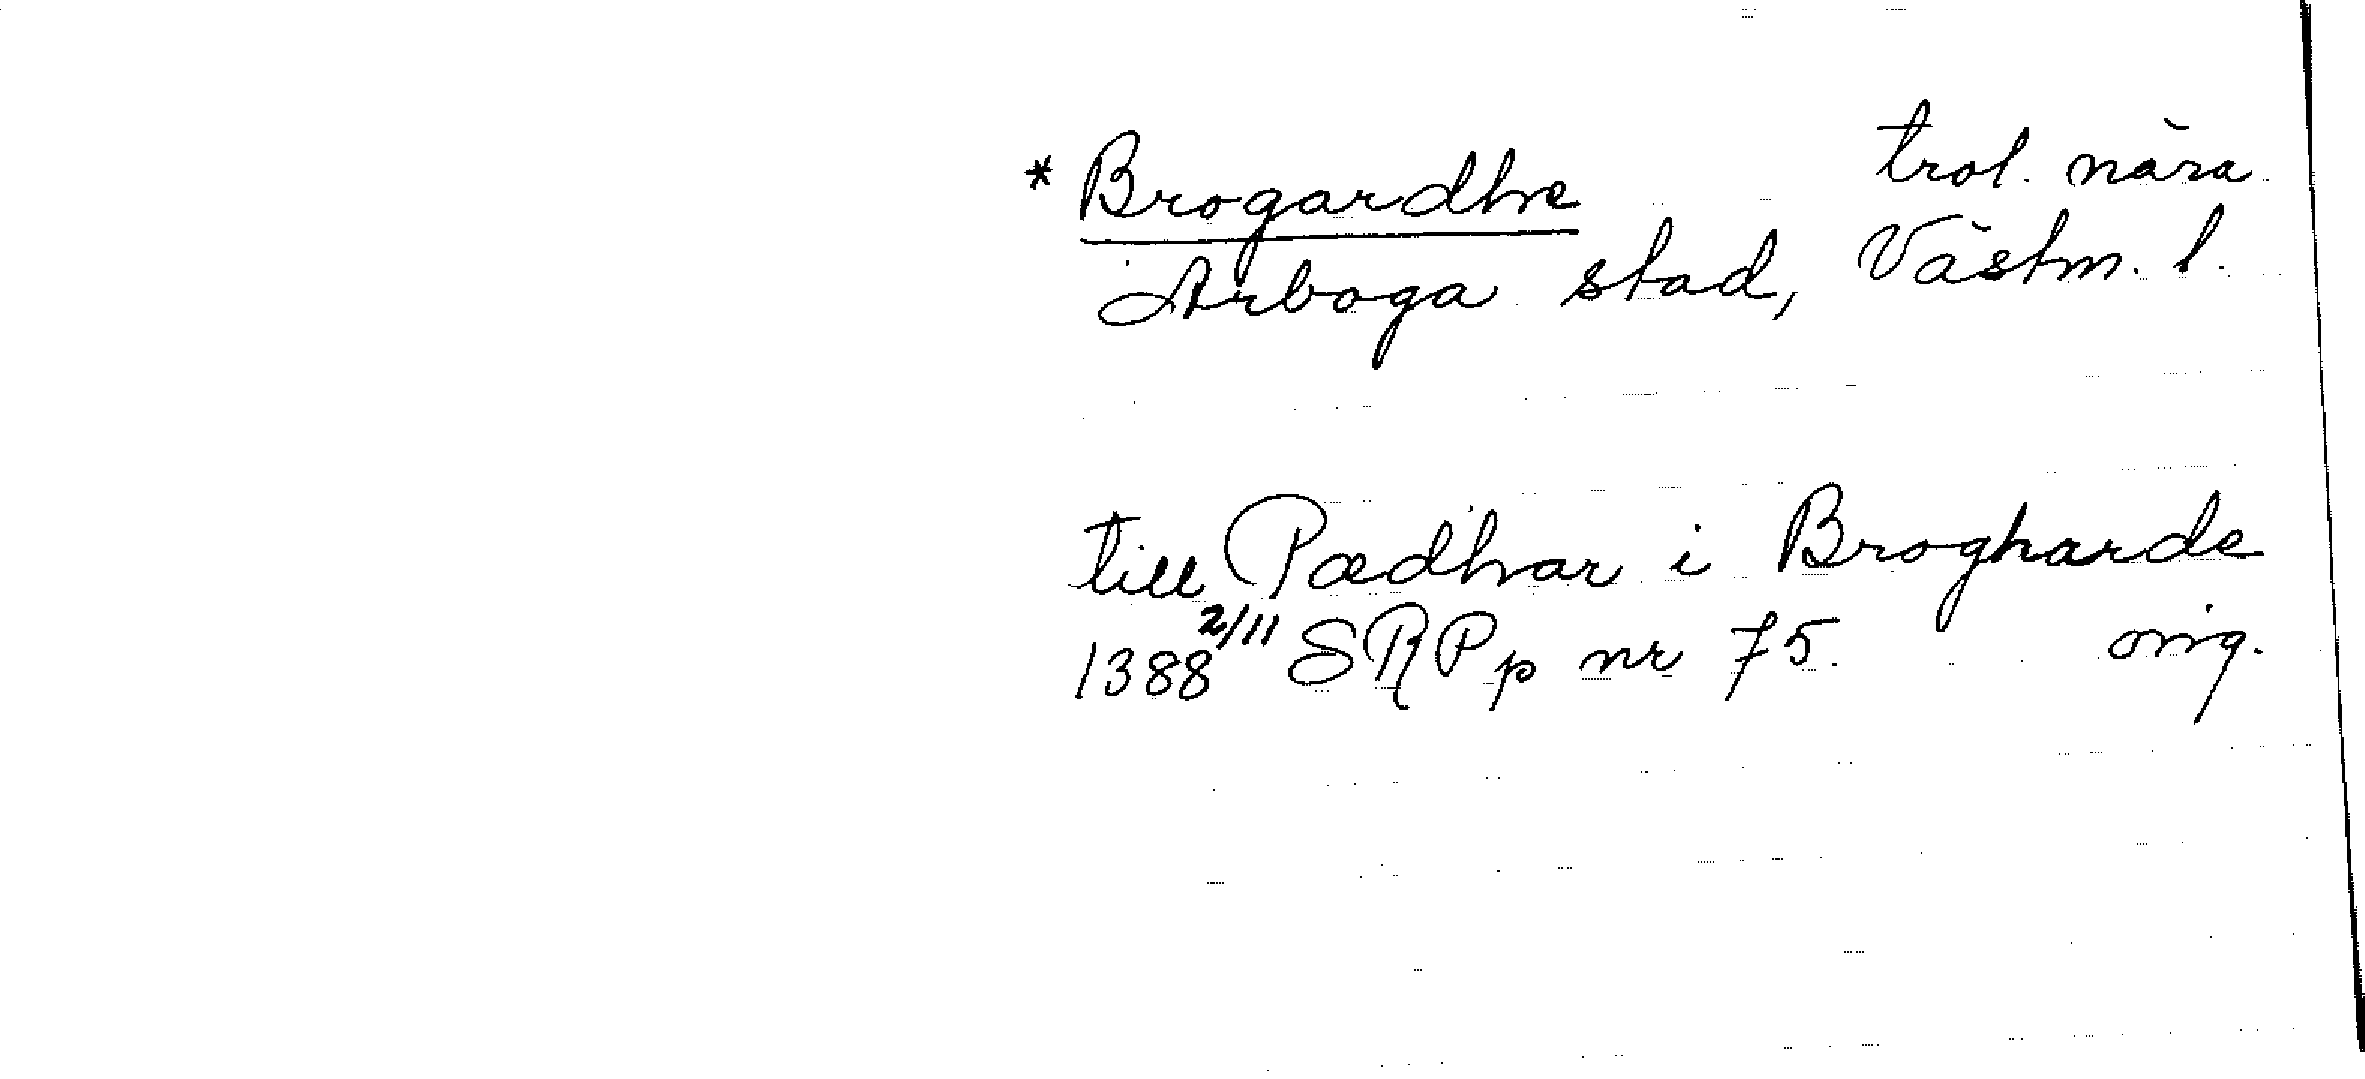 * Brogardhe trol. nära
Arboga stad, Västm. l.
till Pædhar i Brogharde
1388 2/11 SRPp nr 75. orig.